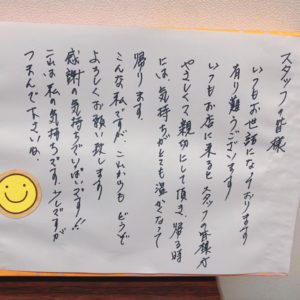 スタッフの皆様
いつもお世話になっております
有り難うございます
いつもお店に来るとスタッフの皆様が
やさしくて親切にして頂き、帰る時
には、気持ちがとても温かくなって
帰ります。
こんな私ですが、これからも どうぞ
よろしくお願い致します
感謝の気持ちでいっぱいです!!
これは私の気持ちです。少しですが
つまんで下さいね。